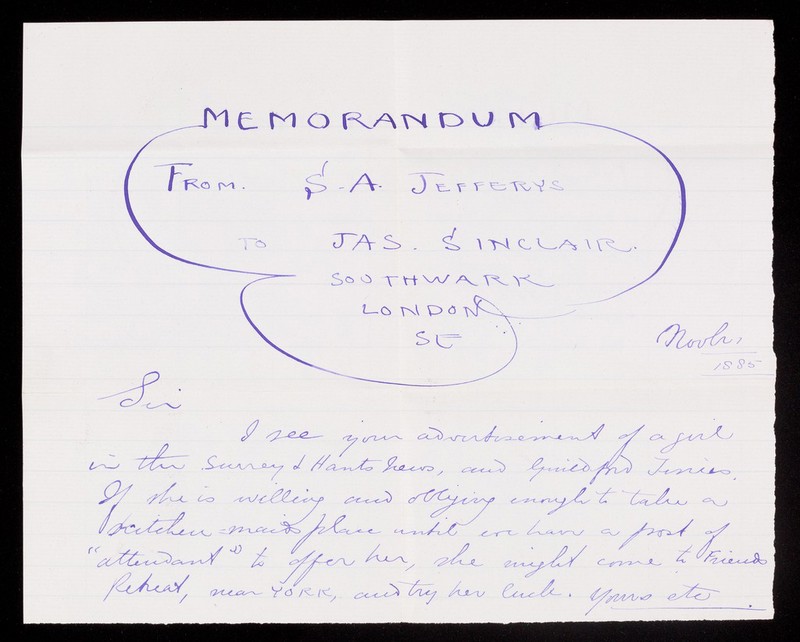 MEMORANDUM
FROM. S. A. JEFFERYS
TO JAS. SINCLAIR.
SOUTHWARK
LONDON
SE
Novbr,
1885
Sir
I see your advertisement of a girl
in the Surrey & Hants News, and Guildford Times.
If she is willing and obliging enough to take a
kitchen-maids place until we have a post of
"attendant" to offer her, she might come to Friends
Retreat, near YORK, and try her luck. Yours etc.